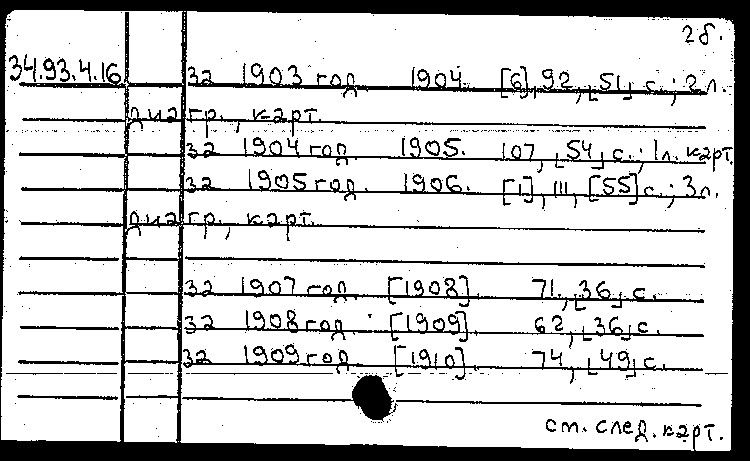 2б.
34.93.4.16 за 1903 год. 1904. [6], 92, [51] с.; 2 л.
диагр., карт.
за 1904 год. 1905. 107, [54] с.; 1 л. карт.
за 1905 год. 1906. [1], III, [55] с.; 3 л.
диагр., карт.
за 1907 год. [1908]. 71, [36] с.
за 1908 год. [1909]. 62, [36] с.
за 1909 год. [1910]. 74, [49] с.
см. след. карт.